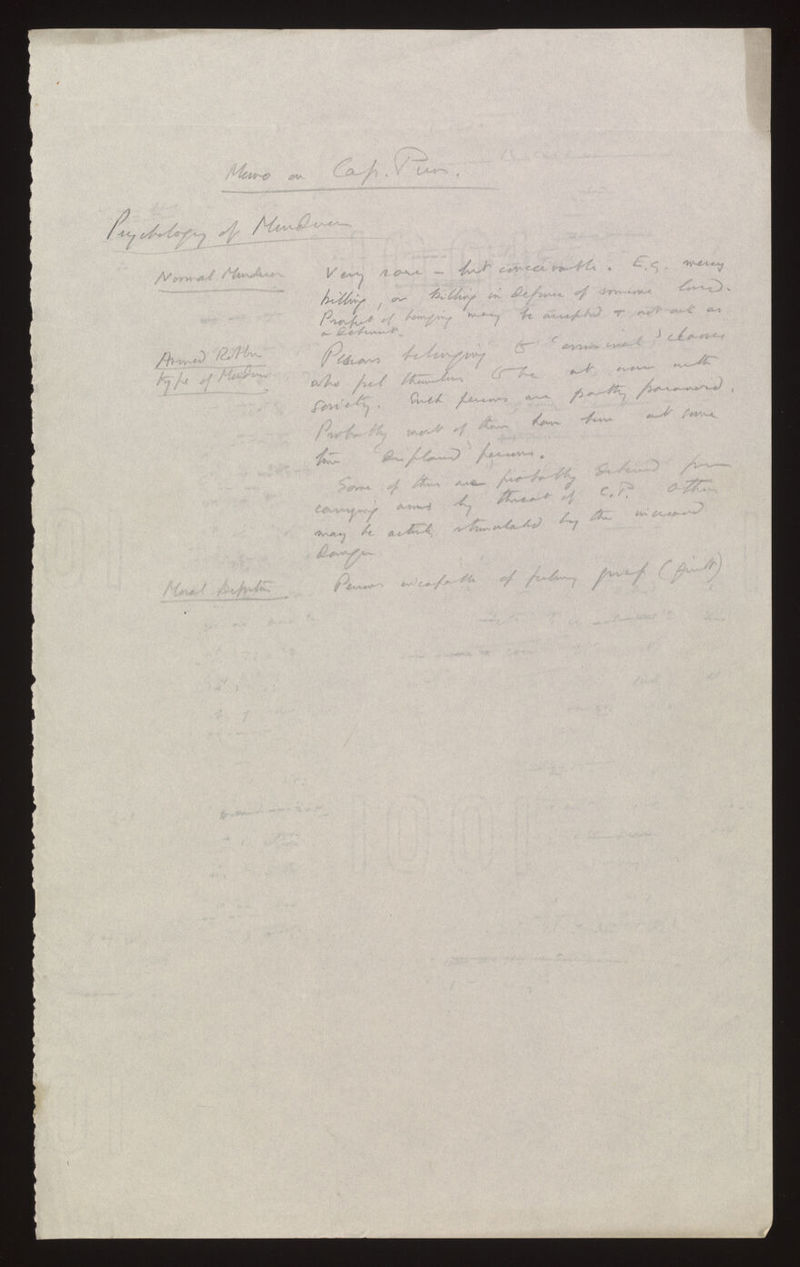 Memo on Cap. Pun.
Psychology of Murderers
Normal Murderer Very rare – but conceivable. E.g. mercy
killing, or killing in defence of someone loved.
Prospect of hanging may be accepted & not act as
a deterrent.
Armed Robber Persons belonging to "criminal" classes
type of Murderer who feel themselves to be at war with
society. Such persons are partly paranoid.
Probably most of them have been at some
time "displaced" persons.
Some of them are probably deterred from
carrying arms by threat of C.P. Others
may be actually stimulated by the increased
danger
Moral Defective Persons incapable of feeling grief (guilt)